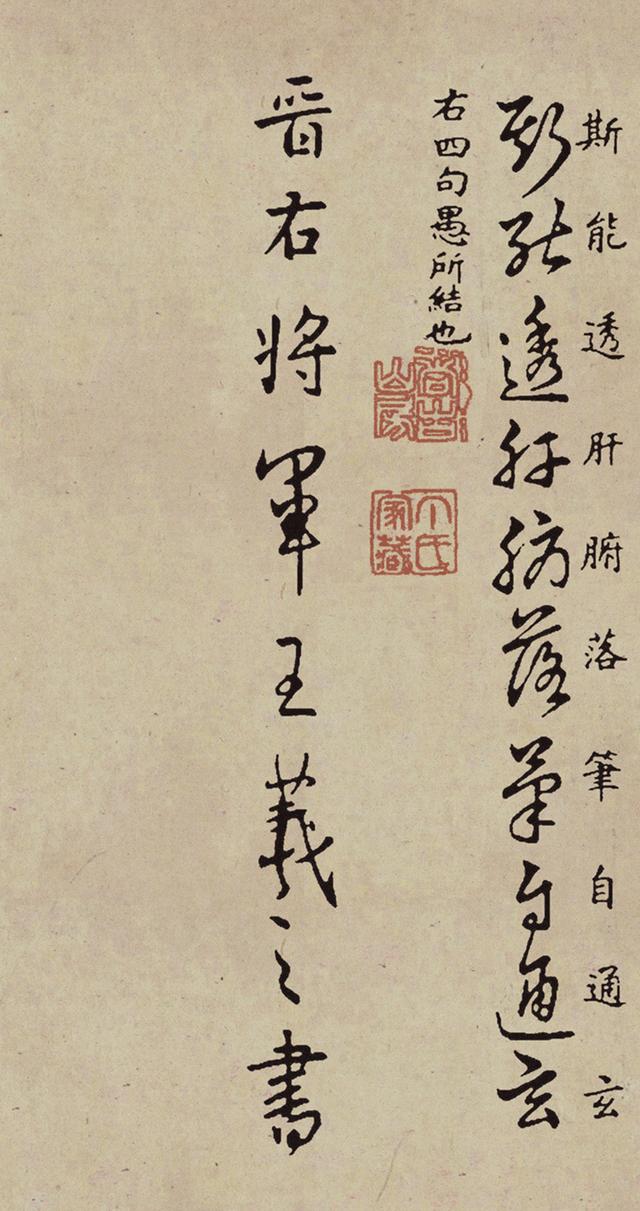 斯能透肝腑落筆自通玄
斯能透肝腑落筆自通玄
右四句愚所結也
卞氏家藏
晉右將軍王羲之書